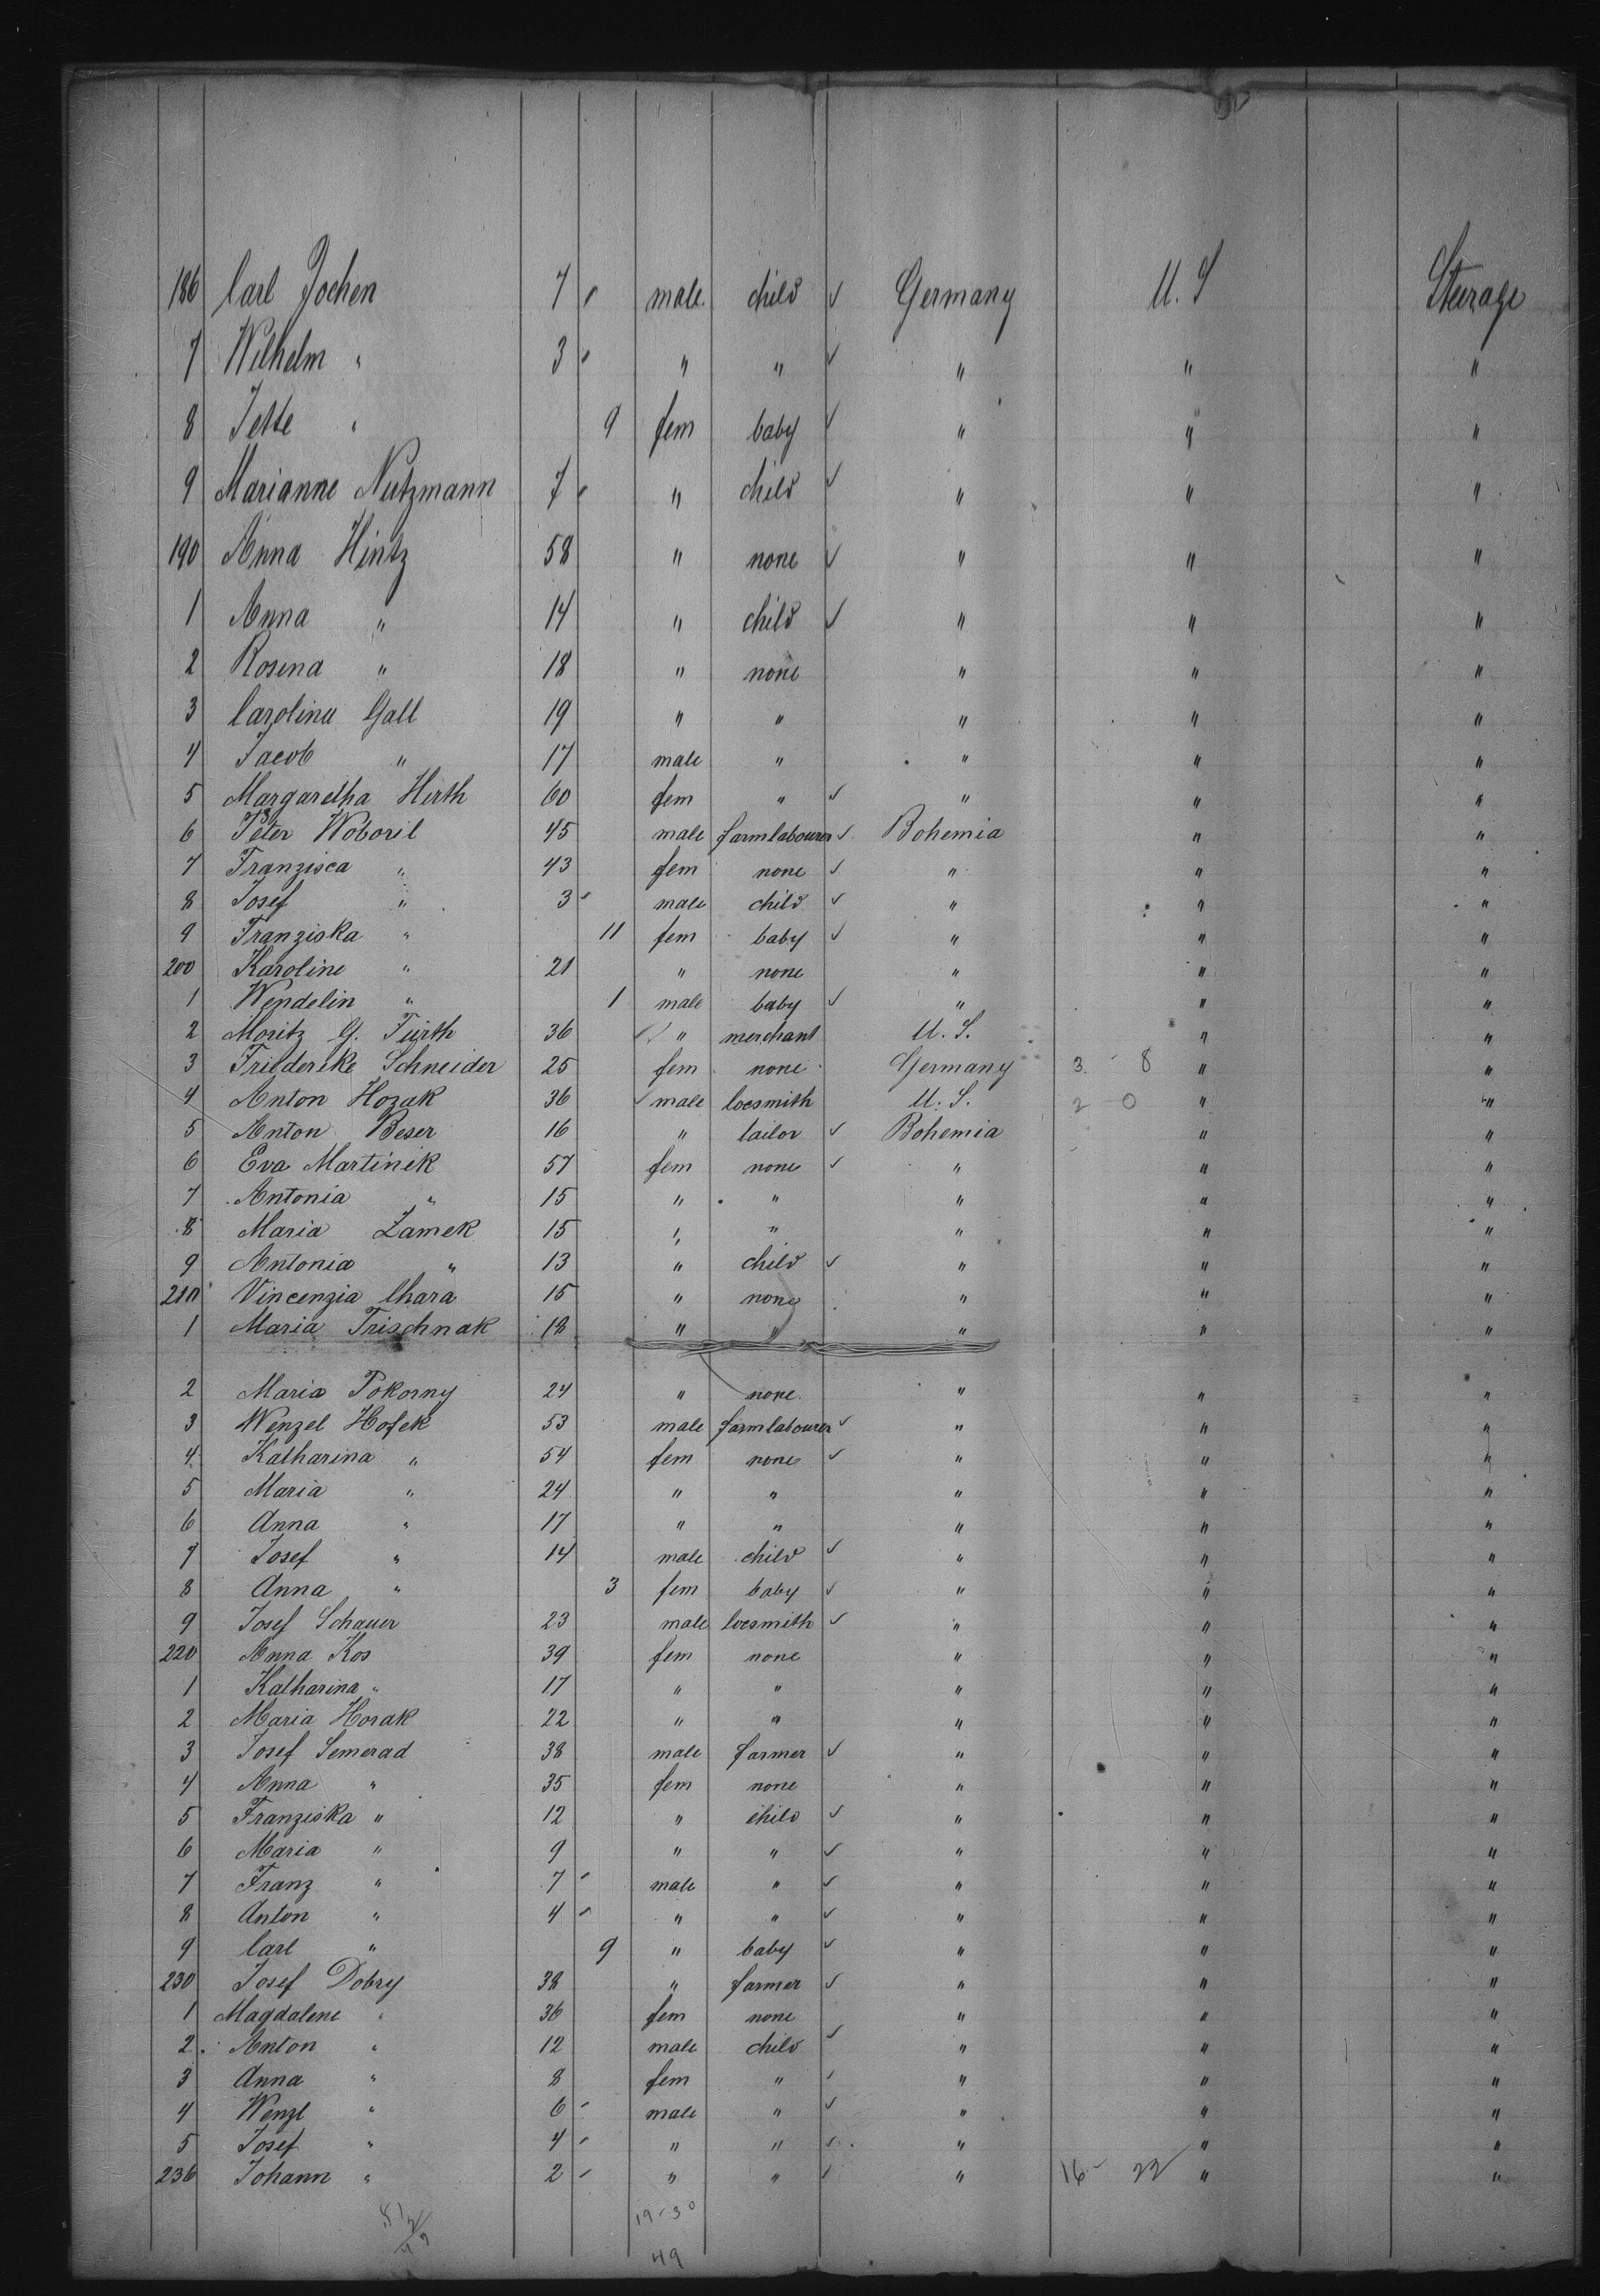 186 Carl Jochen 7 male child ✓ Germany U. S Steerage
7 Wilhelm " 3 " " ✓ " " "
8 Jette " 9 fem baby ✓ " " "
9 Marianne Nutzmann 7 " child ✓ " " "
190 Anna Hintz 58 " none ✓ " " "
1 Anna " 14 " child ✓ " " "
2 Rosina " 18 " none " " "
3 Carolina Gall 19 " " " " "
4 Jacob " 17 male " " " "
5 Margaretha Hirth 60 fem " ✓ " " "
6 Peter Woboril 45 male farmlabourer ✓ Bohemia " "
7 Franzisca " 43 fem none ✓ " " "
8 Josef " 3 male child ✓ " " "
9 Franziska " 11 fem baby ✓ " " "
200 Karoline " 21 " none " " "
1 Wendelin " 1 male baby ✓ " " "
2 Moritz G. Fürth 36 " merchant U. S. " "
3 Friederike Schneider 25 fem none Germany 3 - 8 " "
4 Anton Hozak 36 ✓ male locsmith U. S. 2 - 0 " "
5 Anton Beser 16 " tailor ✓ Bohemia " "
6 Eva Martinek 57 fem none ✓ " " "
7 Antonia " 15 " " " " "
8 Maria Zamek 15 " " " " "
9 Antonia " 13 " child ✓ " " "
210 Vincenzia Chara 15 " none " " "
1 Maria Trischnak 18 " " " " "
2 Maria Pokorny 24 " none " " "
3 Wenzel Hofek 53 male farmlabourer ✓ " " "
4 Katharina " 54 fem none ✓ " " "
5 Maria " 24 " " " " "
6 Anna " 17 " " " " "
7 Josef " 14 male child ✓ " " "
8 Anna " 3 fem baby ✓ " " "
9 Josef Schauer 23 male locsmith ✓ " " "
220 Anna Kos 39 fem none " " "
1 Katharina " 17 " " " " "
2 Maria Horak 22 " " " " "
3 Josef Semerad 38 male farmer ✓ " " "
4 Anna " 35 fem none " " "
5 Franziska " 12 " child ✓ " " "
6 Maria " 9 " " ✓ " " "
7 Franz " 7 male " ✓ " " "
8 Anton " 4 " " ✓ " " "
9 Carl " 9 " baby ✓ " " "
230 Josef Dobry 38 " farmer ✓ " " "
1 Magdalene " 36 fem none " " "
2 Anton " 12 male child ✓ " " "
3 Anna " 8 fem " ✓ " " "
4 Wenzl " 6 male " ✓ " " "
5 Josef " 4 " " ✓ " " "
236 Johann " 2 " " ✓ " 16 - 22 " "
19 - 30
49